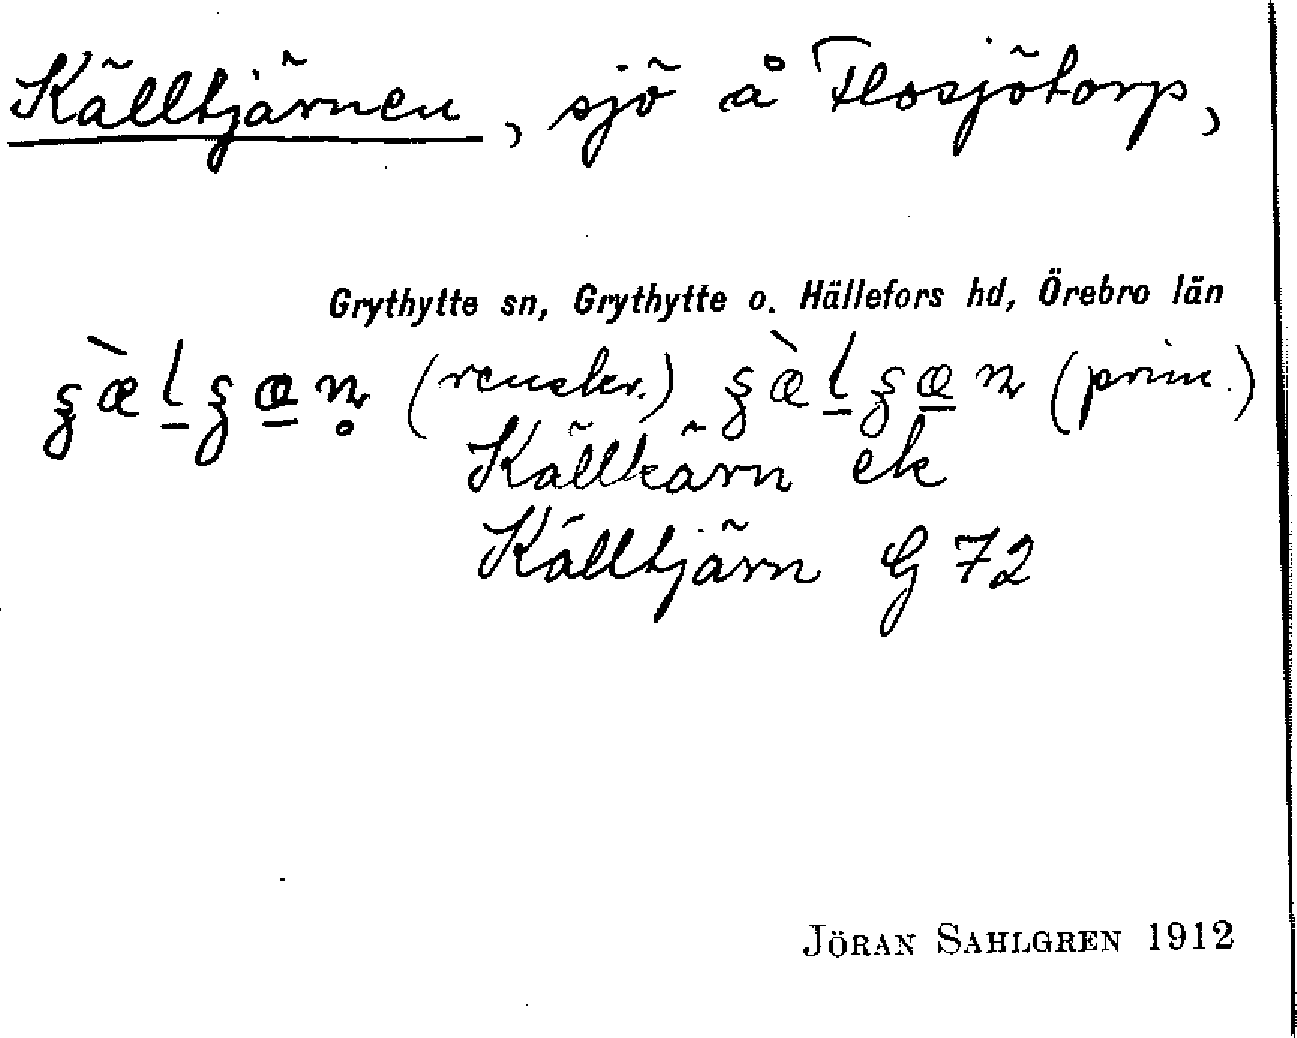 Källtjärnen, sjö å Flosjötorp,
Grythytte sn, Grythytte o. Hällefors hd, Örebro län
(renskr.) (prim.)
Källkärn ek
Källtjärn G 72
JÖRAN SAHLGREN 1912